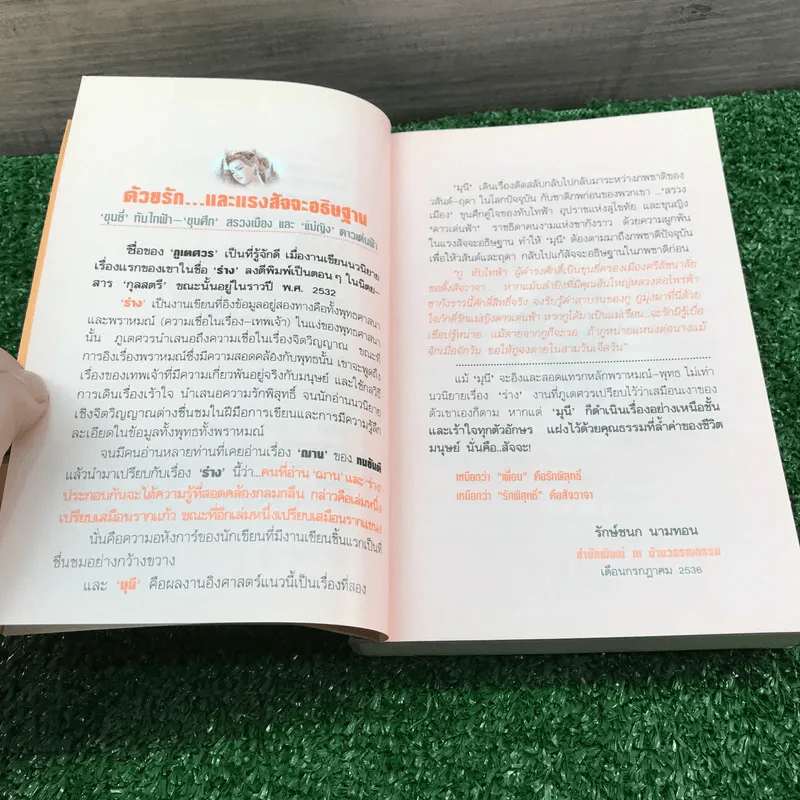 ด้วยรัก...และแรงสัจจะอธิษฐาน
'ขุนขี่' ทับไทฟ้า–'ขุนศึก' สรวงเมือง และ 'แม่ญิง' ดาวเด่นฟ้า
ชื่อของ 'ภูเตศวร' เป็นที่รู้จักดี เมื่องานเขียนนวนิยาย
เรื่องแรกของเขาในชื่อ 'ร่าง' ลงตีพิมพ์เป็นตอน ๆ ในนิตย-
สาร 'กุลสตรี' ขณะนั้นอยู่ในราวปี พ.ศ. 2532
'ร่าง' เป็นงานเขียนที่อิงข้อมูลอยู่สองทางคือทั้งพุทธศาสนา
และพราหมณ์ (ความเชื่อในเรื่อง–เทพเจ้า) ในแง่ของพุทธศาสนา
นั้น ภูเตศวรนำเสนอถึงความเชื่อในเรื่องจิตวิญญาณ ขณะที่
การอิงเรื่องพราหมณ์ซึ่งมีความสอดคล้องกับพุทธนั้น เขาจะพูดถึง
เรื่องของเทพเจ้าที่มีความเกี่ยวพันอยู่จริงกับมนุษย์ และใช้กลวิธี
การเดินเรื่องเร้าใจ นำเสนอความรักพิสุทธิ์ จนนักอ่านนวนิยาย
เชิงจิตวิญญาณต่างชื่นชมในฝีมือการเขียนและการมีความรู้ลึก
ละเอียดในข้อมูลทั้งพุทธทั้งพราหมณ์
จนมีคนอ่านหลายท่านที่เคยอ่านเรื่อง 'ฌาน' ของ ทมยันตี
แล้วนำมาเปรียบกับเรื่อง 'ร่าง' นี้ว่า...คนที่อ่าน 'ฌาน' และ 'ร่าง'
ประกอบกันจะได้ความรู้ที่สอดคล้องกลมกลืน กล่าวคือเล่มหนึ่ง
เปรียบเสมือนรากแก้ว ขณะที่อีกเล่มหนึ่งเปรียบเสมือนรากแขนง
นั่นคือความอหังการ์ของนักเขียนที่มีงานเขียนชิ้นแรกเป็นที่
ชื่นชมอย่างกว้างขวาง
และ 'มุนี' คือผลงานอิงศาสตร์แนวนี้เป็นเรื่องที่สอง
'มุนี' เดินเรื่องตัดสลับกลับไปกลับมาระหว่างภพชาติของ
วสันต์–ฤดา ในโลกปัจจุบัน กับชาติภพก่อนของพวกเขา ...'สรวง
เมือง' ขุนศึกคู่ใจของทับไทฟ้า อุปราชแห่งลุโขทัย และขุนญิง
'ดาวเด่นฟ้า' ราชธิดาคนงามแห่งชากังราว ด้วยความผูกพัน
ในแรงสัจจะอธิษฐาน ทำให้ 'มุนี' ต้องตามมาถึงภพชาติปัจจุบัน
เพื่อให้วสันต์และฤดา กลับไปแก้สัจจะอธิษฐานในภพชาติก่อน
แม้ 'มุนี' จะอิงและสอดแทรกหลักพราหมณ์–พุทธ ไม่เท่า
นวนิยายเรื่อง 'ร่าง' งานที่ภูเตศวรเปรียบไว้ว่าเสมือนเงาของ
ตัวเขาเองก็ตาม หากแต่ 'มุนี' ก็ดำเนินเรื่องอย่างเหนือชั้น
และเร้าใจทุกตัวอักษร แฝงไว้ด้วยคุณธรรมที่ล้ำค่าของชีวิต
มนุษย์ นั่นคือ..สัจจะ!
เหนือกว่า "เพื่อน" คือรักพิสุทธิ์
เหนือกว่า "รักพิสุทธิ์" คือสัจวาจา
รักษ์ชนก นามทอน
สำนักพิมพ์ ณ บ้านวรรณกรรม
เดือนกรกฎาคม 2536